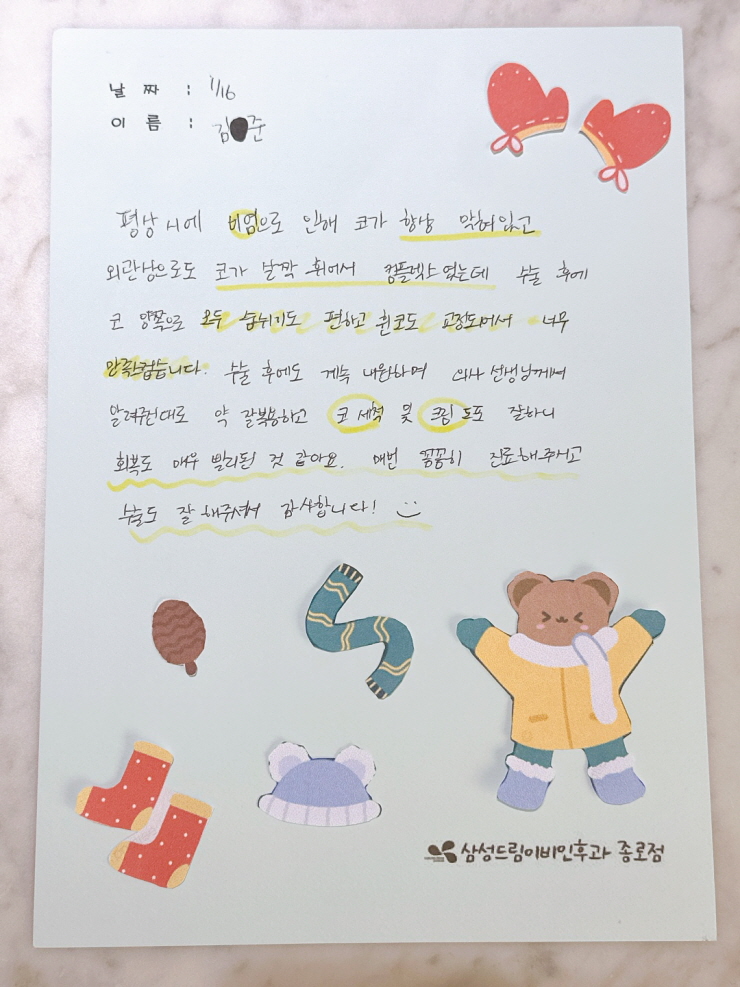 날 짜 : 1/16
이 름 : 김 준
평상시에 비염으로 인해 코가 항상 막혀있고
외관상으로도 코가 살짝 휘어서 컴플렉스 였는데 수술 후에
코 양쪽으로 모두 숨쉬기도 편하고 휜코도 교정되어서 너무
만족스럽습니다. 수술 후에도 계속 내원하며 의사 선생님께서
알려주신대로 약 잘복용하고 코 세척 및 크림 도포 잘하니
회복도 매우 빨리된 것 같아요. 매번 꼼꼼히 진료해주시고
수술도 잘 해주셔서 감사합니다! :)
삼성드림이비인후과 종로점